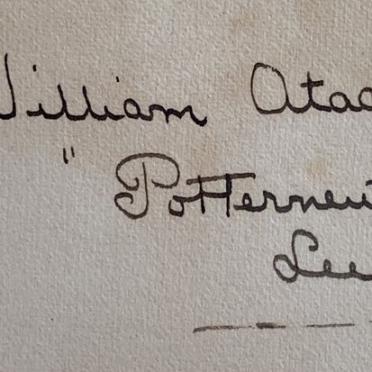 William Otac
" Potternew
Lee